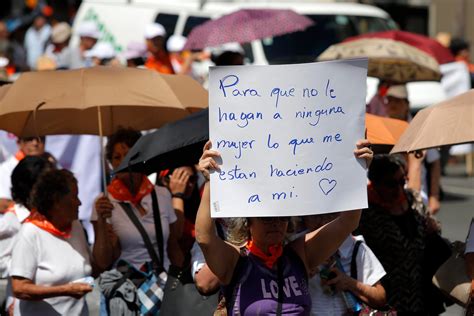 Para que no le
hagan a ninguna
mujer lo que me
estan haciendo
a mi.
LOVE